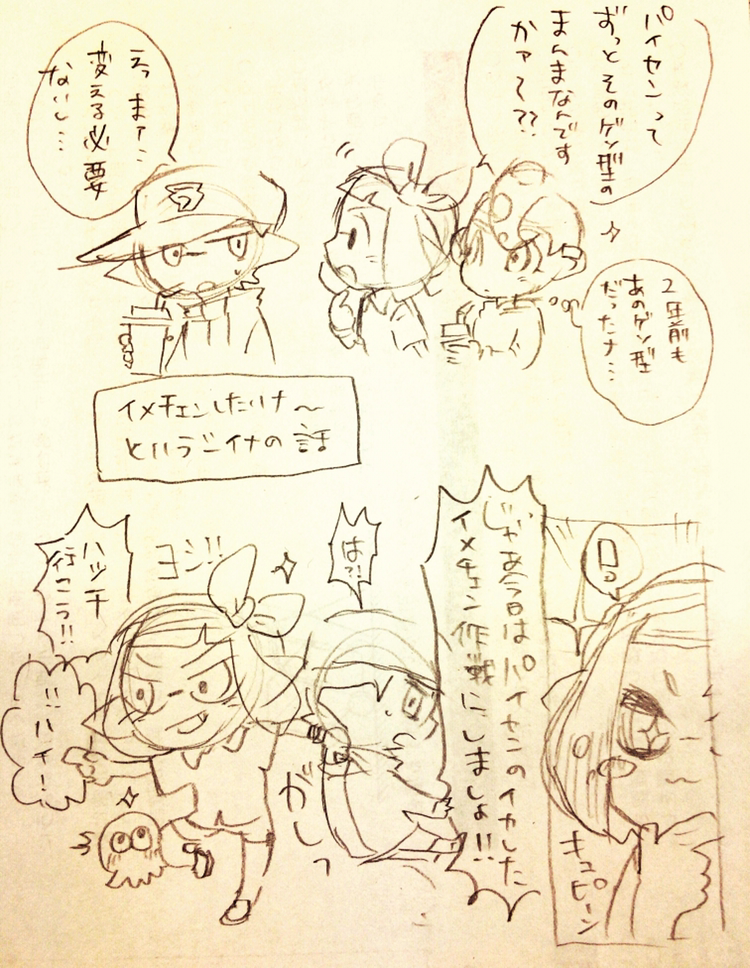 パイセンって
ずっとそのゲソ型の
まんまなんです
かァ〜??
2年前も
あのゲソ型
だったナ…
えっ まァ…
変える必要
ないし…
イメチェンしたいナ〜
とハラジイナの話
じゃあ今日はパイセンのイカした
イメチェン作戦にしましょ!!
キュピーン
は?!
がしっ
ヨシ!!
ハッチ
行こう!!
!! ハイ!